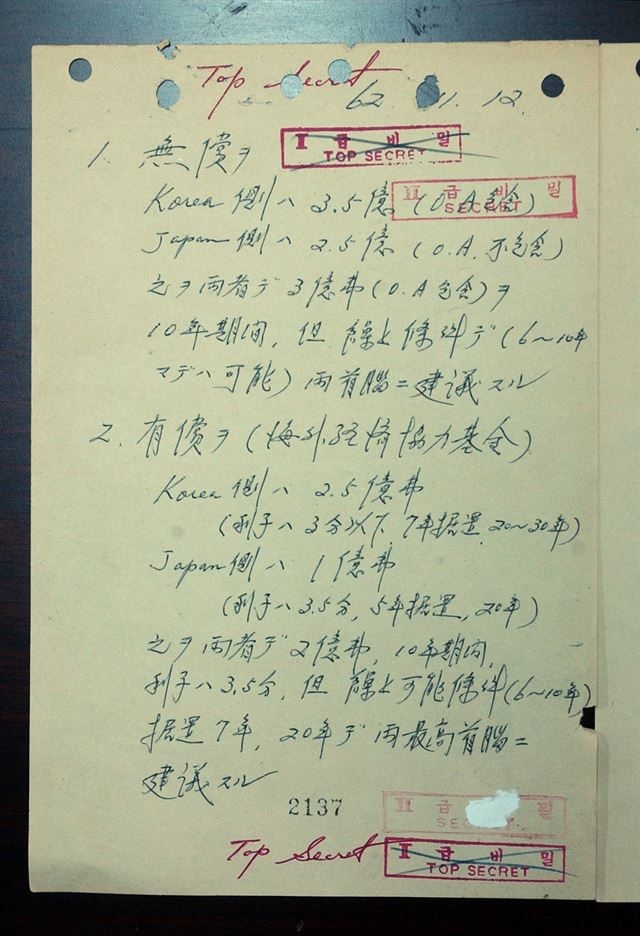 Top Secret
62. 11. 12.
I 급 비 밀
TOP SECRET
1. 無償ヲ
II 급 비 밀
SECRET
Korea 側ハ 3.5億 (O.A 包含)
Japan 側ハ 2.5億 (O.A. 不包含)
之ヲ両者デ 3億弗 (O.A 包含) ヲ
10年期間, 但 繰上條件デ (6~10年
マデハ可能) 両首腦ニ建議スル
2. 有償ヲ (海外経済協力基金)
Korea 側ハ 2.5億弗
(利子ハ 3分以下, 7年据置, 20~30年)
Japan 側ハ 1億弗
(利子ハ 3.5分, 5年据置, 20年)
之ヲ両者デ 2億弗, 10年期間,
利子ハ 3.5分, 但 繰上可能條件 (6~10年)
据置 7年, 20年デ両最高首腦ニ
建議スル
2137
II 급 밀
SECRET
Top Secret
I 급 비 밀
TOP SECRET